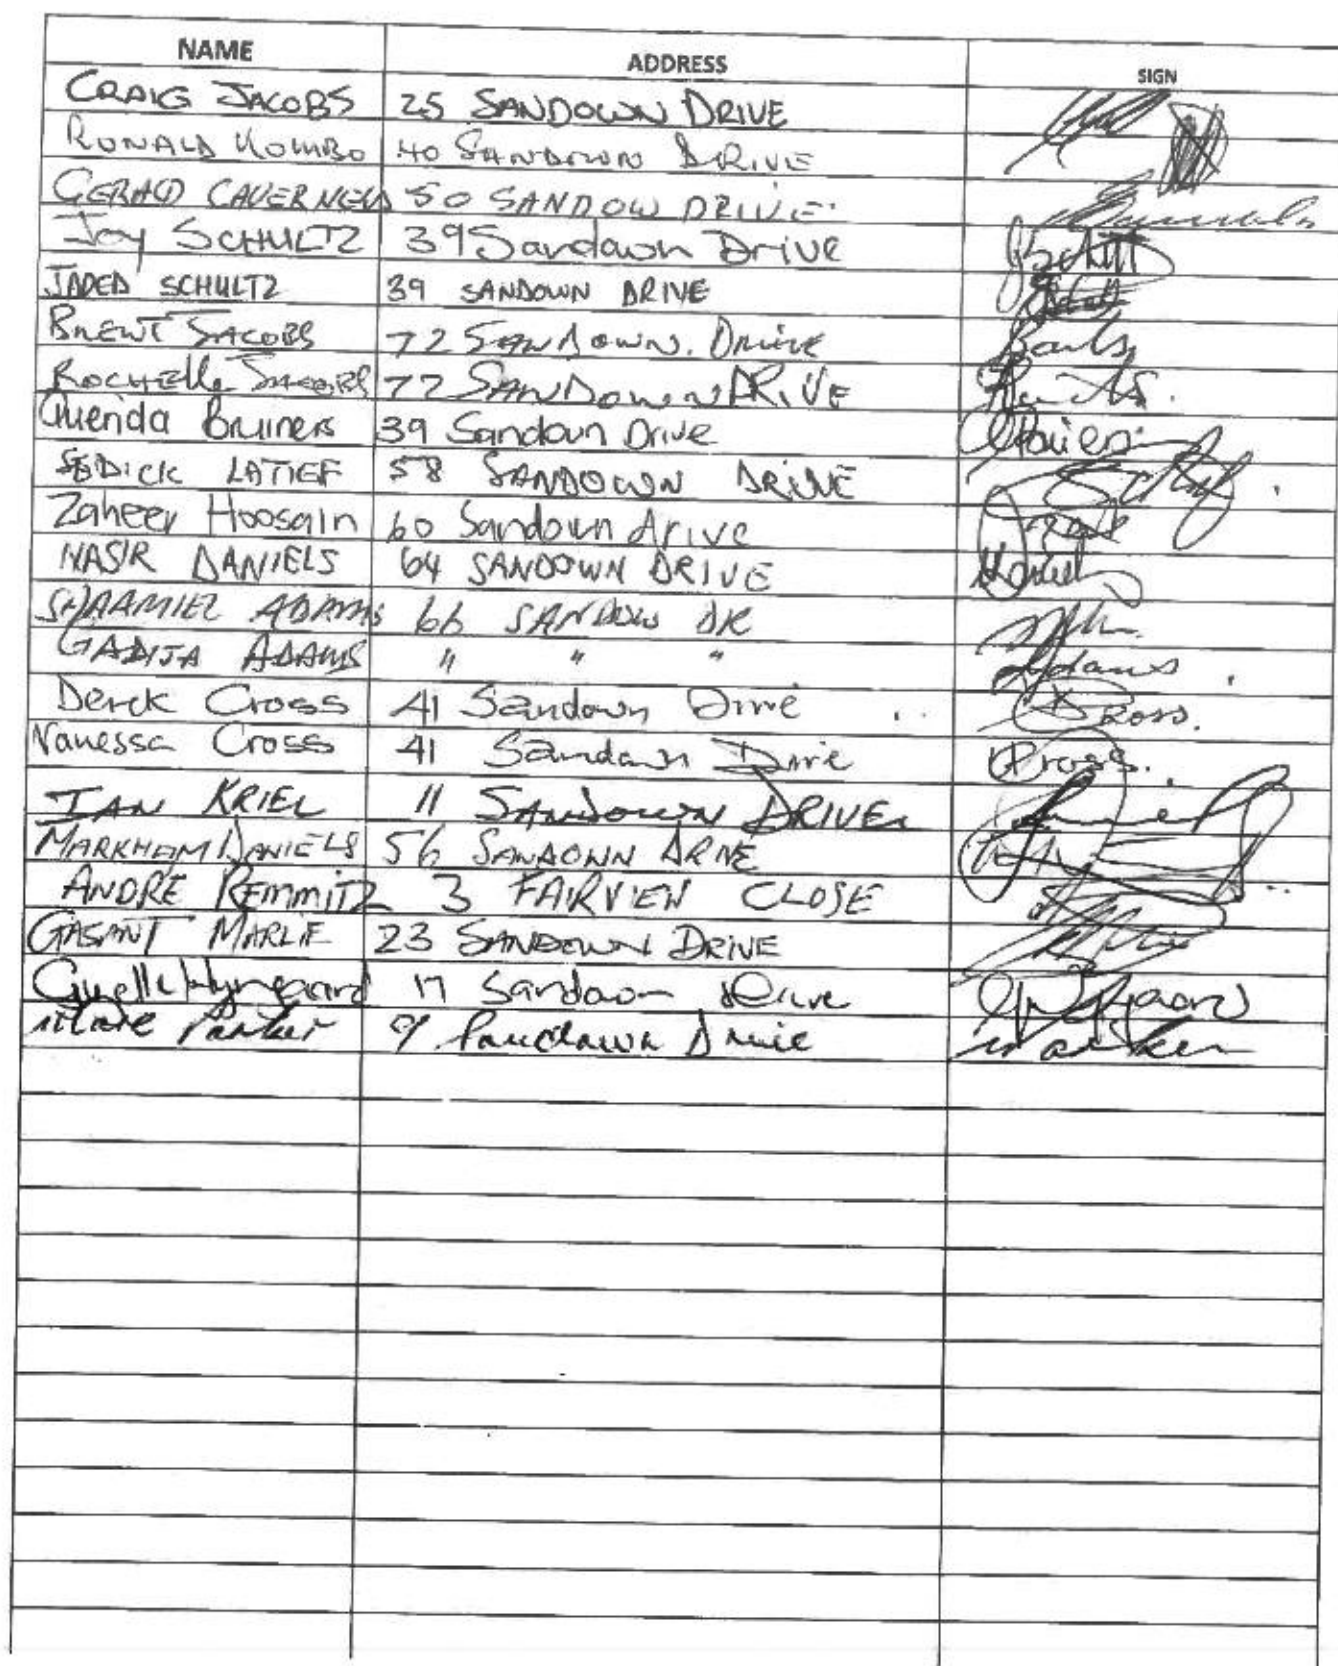 NAME ADDRESS SIGN
CRAIG JACOBS 25 SANDOWN DRIVE
RONALD 40 SANDOWN DRIVE
GERALD 50 SANDOW DRIVE
Joy SCHULTZ 39 Sandown Drive
JARED SCHULTZ 39 SANDOWN DRIVE
BRENT JACOBS 72 SANDOWN. Drive
ROCHELLE JACOBS 72 SANDOWN DRIVE
Querida Bruiners 39 Sandown Drive
SEDICK LATIEF 58 SANDOWN DRIVE
Zaheer Hoosain 60 Sandown drive
NASIR DANIELS 64 SANDOWN DRIVE
SHAAMIEL ADAMS 66 SANDOW DR
GADIJA ADAMS " " " Adams
Derck Cross 41 Sandown Drive Cross.
Vanessa Cross 41 Sandown Drive Cross.
IAN KRIEL 11 SANDOWN DRIVE
MARKHAM DANIELS 56 SANDOWN DRIVE
ANDRÉ REMMITZ 3 FAIRVIEW CLOSE
GASANT MARLIE 23 SANDOWN DRIVE
Wyngaard 17 Sandown Drive
Parker 9 Sandown Drive